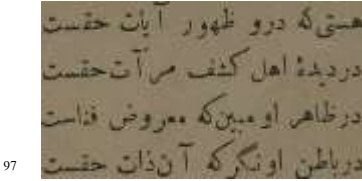 هستی که درو ظهور آیات حقست
در دیدهٔ اهل کشف مرآت حقست
در ظاهر او مبین که معروض فناست
در باطن او نگر که آن ذات حقست
97